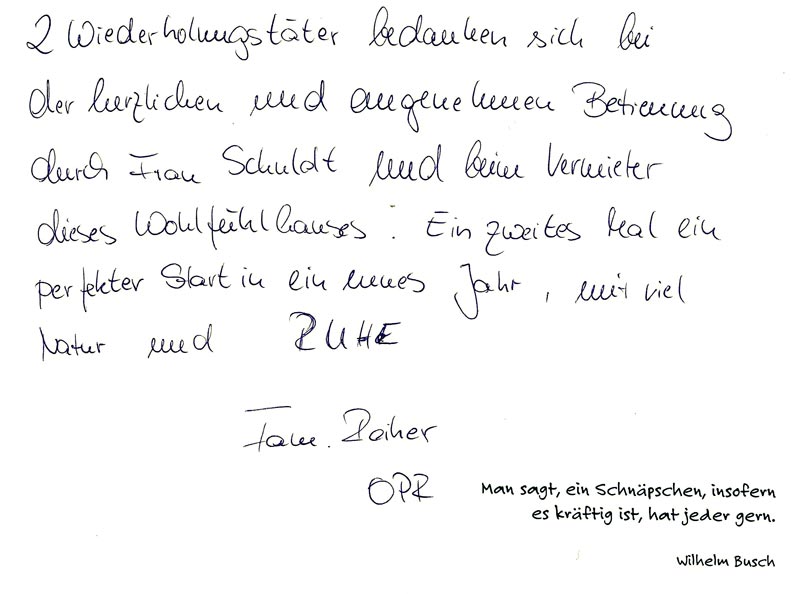 2 Wiederholungstäter bedanken sich bei
der herzlichen und angenehmen Betreuung
durch Frau Schuldt und beim Vermieter
dieses Wohlfühlhauses. Ein zweites Mal ein
perfekter Start in ein neues Jahr, mit viel
Natur und RUHE
Fam.
OPR
Man sagt, ein Schnäpschen, insofern
es kräftig ist, hat jeder gern.
Wilhelm Busch